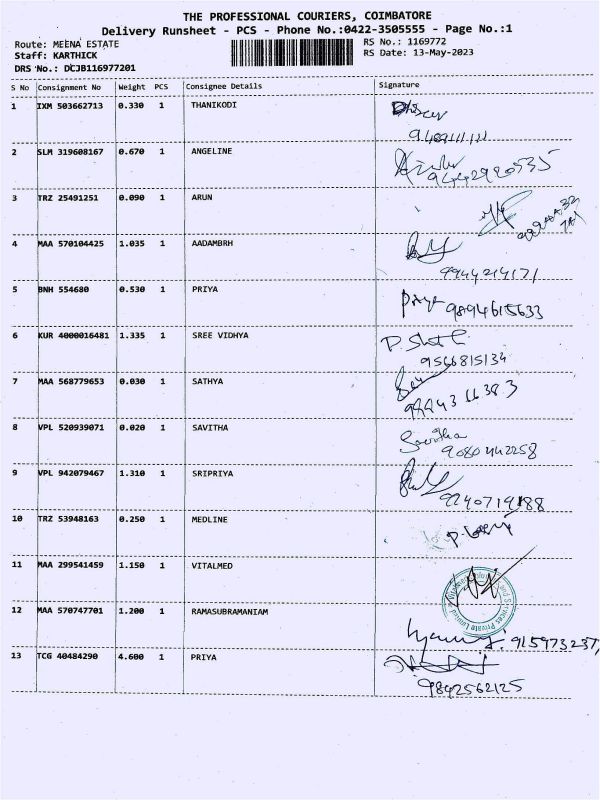 THE PROFESSIONAL COURIERS, COIMBATORE
Delivery Runsheet - PCS - Phone No.:0422-3505555 - Page No.:1
Route: MEENA ESTATE
Staff: KARTHICK
DRS No.: DCJB116977201
RS No.: 1169772
RS Date: 13-May-2023
S No Consignment No Weight PCS Consignee Details Signature
1 IXM 503662713 0.330 1 THANIKODI
2 SLM 319608167 0.670 1 ANGELINE
9442920535
3 TRZ 25491251 0.090 1 ARUN
4 MAA 570104425 1.035 1 AADAMBRH
9944214171
5 BNH 554680 0.530 1 PRIYA
Priya 9894615633
6 KUR 4000016481 1.335 1 SREE VIDHYA
9566815134
7 MAA 568779653 0.030 1 SATHYA
8 VPL 520939071 0.020 1 SAVITHA
Savitha
9080442258
9 VPL 942079467 1.310 1 SRIPRIYA
9240719188
10 TRZ 53948163 0.250 1 MEDLINE
11 MAA 299541459 1.150 1 VITALMED
12 MAA 570747701 1.200 1 RAMASUBRAMANIAM
915973237
13 TCG 40484290 4.600 1 PRIYA
9842562125